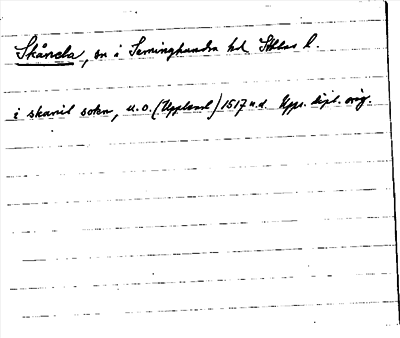 Skånela, sn i Seminghundra hd, Sthlms l.
i skanil sokn, u.o. (Uppland) 1517 u.d. Upps. dipl. orig.